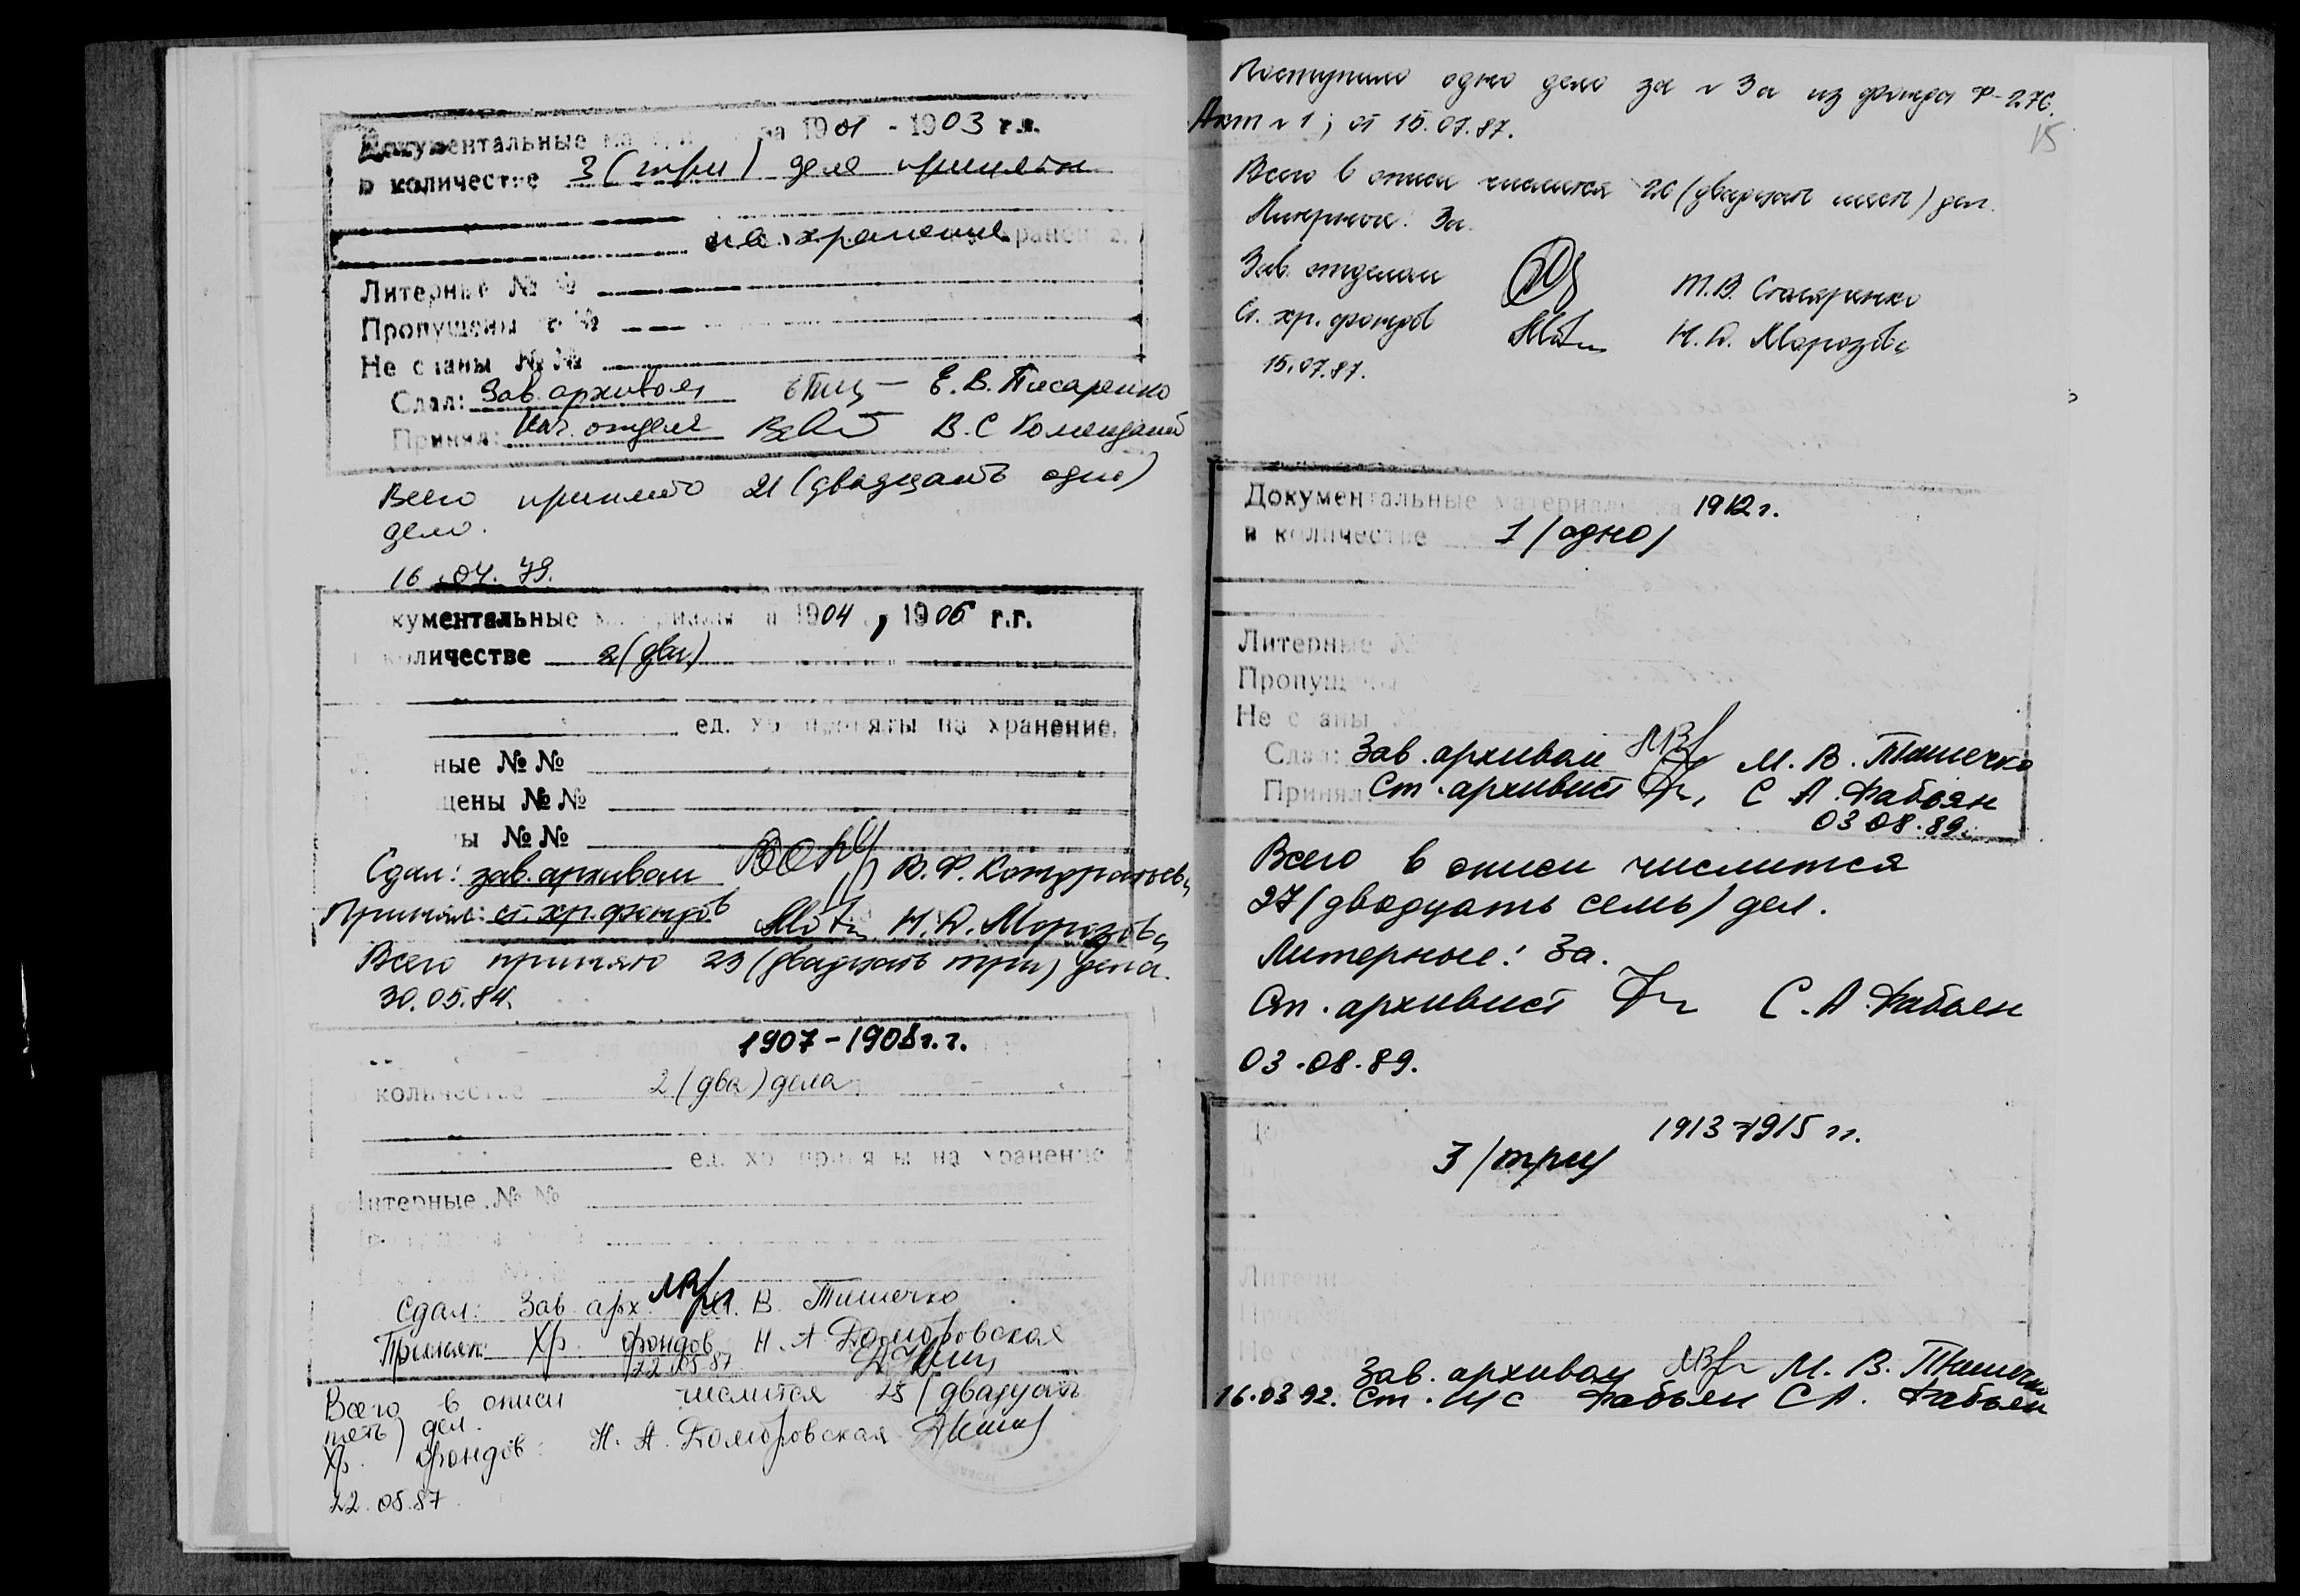 Документальные ма за 1901 - 1903 г.г.
в количестве 3 (три) дела приняты
на хранение
Литерные № №
Пропущены № №
Не сданы № №
Сдал: Зав. архивом Е. В. Писаренко
Принял: Нач. отдела В. С
Всего принято 21 (двадцать одно)
дело.
16.04.79.
кументальные 1904, 1906 г.г.
количестве 2 (два)
ед. хр приняты на хранение.
ные № №
щены № №
ы № №
Сдал: зав. архивом В. Ф. Кондратьева
Принял: ст. хр. фондов Н. Д. Морозова
Всего принято 23 (двадцать три) дела.
30.05.84.
1907 - 1908 г.г.
количестве 2 (два) дела
ед. хр приняты на хранение
Литерные № №
Сдал: Зав. арх. М. В. Тимечко
Принял: Хр. фондов Н. А. Домбровская
22.05.87
Всего в описи числится 25 (двадцать
пять) дел.
Хр. фондов: Н. А. Домбровская
22.05.87
Поступило одно дело за № 3а из фонда Ф-276.
Акт № 1; от 15.07.87.
15
Всего в описи числится 26 (двадцать шесть) дел.
Литерные: 3а.
Зав. отделом Т. В. Столяренко
Ст. хр. фондов Н. Д. Морозова
15.07.87.
Документальные материалы за 1912 г.
в количестве 1 (одно)
Литерные №
Пропущены
Не сданы
Сдал: Зав. архивом М. В. Тимечко
Принял: Ст. архивист С. А. Фабьян
03.08.89.
Всего в описи числится
27 (двадцать семь) дел.
Литерные: 3а.
Ст. архивист С. А. Фабьян
03.08.89.
1913-1915 гг.
3 (три)
Литерн
Зав. архивом М. В. Тимечко
16.03.92. Ст. н/с Фабьян С. А. Фабьян